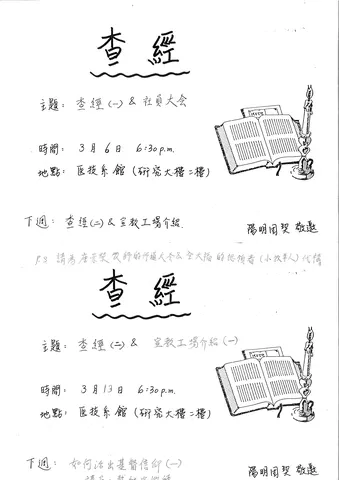 查經
主題: 查經(一) & 社員大会
時間: 3月6日 6:30 p.m.
地點: 医技系館 (研究大樓二樓)
下週: 查經(二) & 宣教工場介紹
陽明团契 敬邀
P.S 請為
查經
主題: 查經(二) & 宣教工場介紹(一)
時間: 3月13日 6:30 p.m.
地點: 医技系館 (研究大樓二樓)
下週: 如何活出基督信仰(一)
陽明团契 敬邀